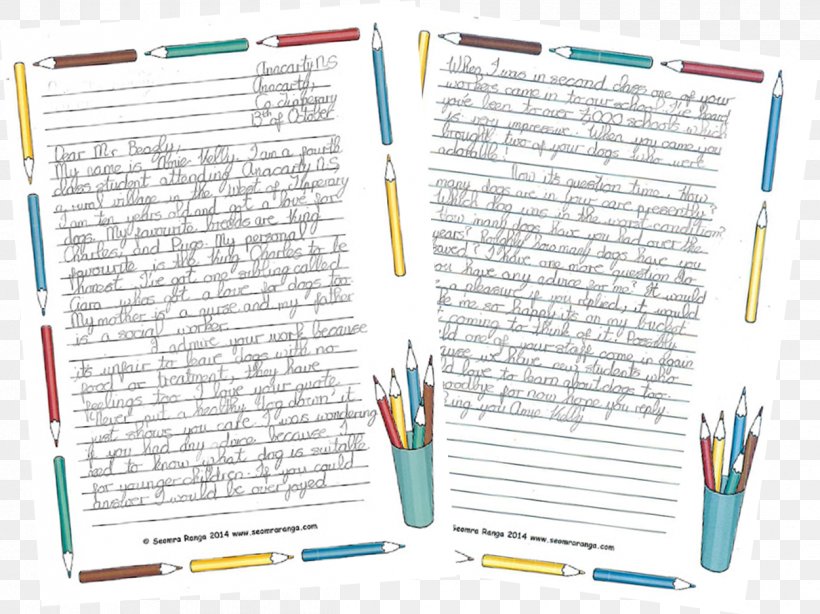 Anacarty N.S
Anacarty,
Co. Tipperary
13th of October
Dear Mr. Beasly,
My name is Amie Kelly. I am a fourth
class student attending Anacarty N.S,
a rural village in the west of Tipperary
I am ten years old and got a love for
dogs. My favourite breeds are King
Charles, and Pugs. My personal
favourite is the King Charles to be
honest. I've got one sibling called
Ciara who's got a love for dogs too
My mother is a nurse and my father
is a social worker.
I admire your work because
its unfair to leave dogs with no
food or treatment, they have
feelings too. I love your quote
"Never put a healthy dog down" it
just shows you care. I was wondering
if you had any advice because I
need to know what dog is suitable
for younger children. If you could
answer I would be overjoyed
© Seomra Ranga 2014 www.seomraranga.com
When I was in second class one of your
workers came in to our school. We heard
you've been to over 4,000 schools which
is very impressive. When you came you
brought two of your dogs who were
adorable!
Now it's question time. How
many dogs are in your care presently?
Which dog was in the worst condition?
How many dogs have you had over the
years? Roughly how many dogs have you
saved? I have one more question do
you have any advice for me? It would
be a pleasure if you replied, it would
me so happy its on my bucket
coming to think of it! Possibly
one of your staff come in again
we have new students who
love to learn about dogs too.
Goodbye for now hope you reply
you Amie Kelly
Seomra Ranga 2014 www.seomraranga.com